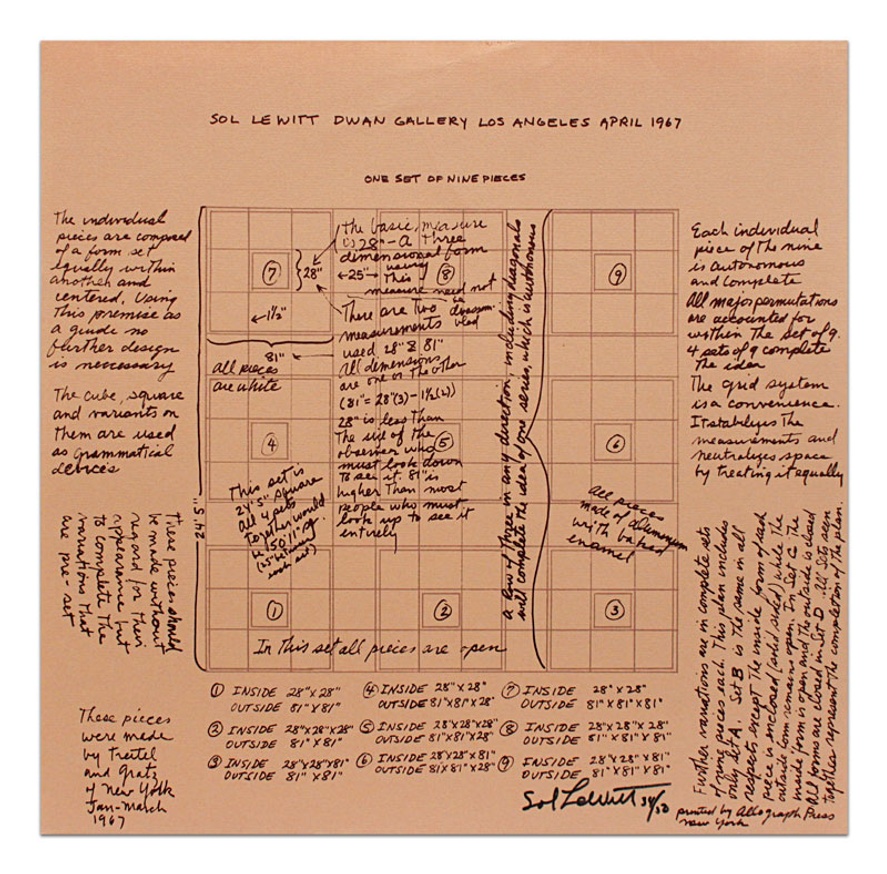 SOL LEWITT DWAN GALLERY LOS ANGELES APRIL 1967
ONE SET OF NINE PIECES
The individual
pieces are composed
of a form set
equally within
another and
centered. Using
This premise as
a guide no
further design
is necessary
The cube, square
and variants on
Them are used
as grammatical
devices
These pieces should
be made without
regard for their
appearance but
to complete the
variations that
are pre-set
These pieces
were made
by Treitel
and Gratz
of New York
Jan-March
1967
24' 5"
7
28"
1½"
81"
all pieces
are white
the basic measure
is 28" - A Three
dimensional form
←25"→ 8
This
measure need not
be
There are Two
measurements
used 28" & 81"
All dimensions
are one or the other
(81" = 28"(3) - 1½(2))
28" is less than
The size of the
observer who
must look down
To see it. 81" is
higher Than most
people who must
look up to see it
entirely
a row of three in any direction, including diagonals
will complete the idea of one series, which is autonomous
9
4
5
6
This set is
24'5" square
All 4 sets
together would
be 50'11" sq.
(25" between
each set)
All pieces
made of aluminum
with baked
enamel
1
2
3
In This set all pieces are open
Each individual
piece of The nine
is autonomous
and complete
All major permutations
are accounted for
within The set of 9.
4 sets of 9 complete
The idea
The grid system
is a convenience.
It stabilizes The
measurements and
neutralizes space
by treating it equally
Further variations are in complete sets
of nine pieces each. This plan includes
only set A. Set B is the same in all
respects except The inside form of each
piece is enclosed (solid sided) while The
outside form remains open. In Set C The
inside form is open and The outside is closed
All forms are closed in Set D. All Sets seen
together represent the completion of the plan.
1 INSIDE 28"X28"
OUTSIDE 81"X81"
2 INSIDE 28"X28"X28"
OUTSIDE 81"X81"
3 INSIDE 28"X28"X81"
OUTSIDE 81"X81"
4 INSIDE 28"X28"
OUTSIDE 81"X81"X28"
5 INSIDE 28"X28"X28"
OUTSIDE 81"X81"X28"
6 INSIDE 28"X28"X81"
OUTSIDE 81X81"X28"
7 INSIDE 28"X28"
OUTSIDE 81"X81"X81"
8 INSIDE 28"X28"X28"
OUTSIDE 81"X81"X81"
9 INSIDE 28"X28"X81"
OUTSIDE 81"X81"X81"
Sol LeWitt 34/50
printed by Allograph Press
New York